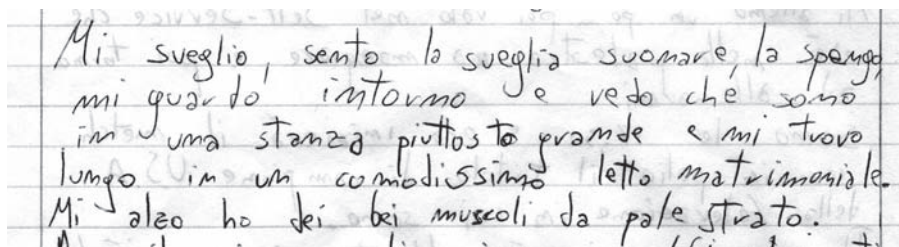 Mi sveglio, sento la sveglia suonare, la spengo,
mi guardo intorno e vedo che sono
in una stanza piuttosto grande e mi trovo
lungo in un comodissimo letto matrimoniale.
Mi alzo ho dei bei muscoli da palestrato.